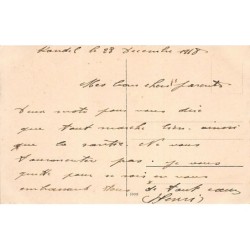 Kandel le 28 Decembre 1918
Mes biens chers parents
Deux mots pour vous dire
que tout marche bien. ainsi
que la santé. Ne vous
tourmentez pas. je vous
quitte pour ce soir en vous
embrassant. Tous de tout cœur
Henri